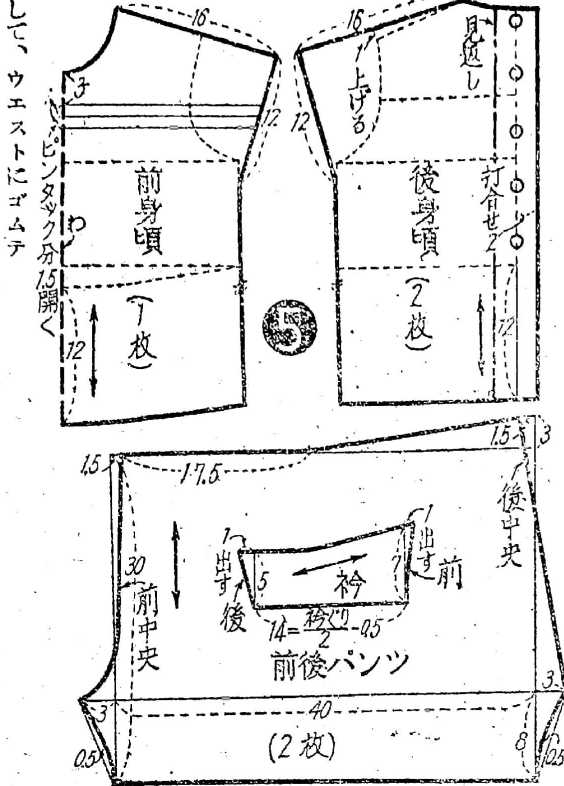 して、ウエストにゴムテ
16
3
12
ピンタック分1.5開く
わ
前身頃
(1枚)
12
5
16
1上げる
12
見返し
打合せ2
後身頃
(2枚)
12
1.5
17.5
1.5
3
1
後中央
30
前中央
1出す
後
5
衿
7
1出す
前
14=衿ぐり/2-0.5
前後パンツ
3
40
3
0.5
(2枚)
8
0.5